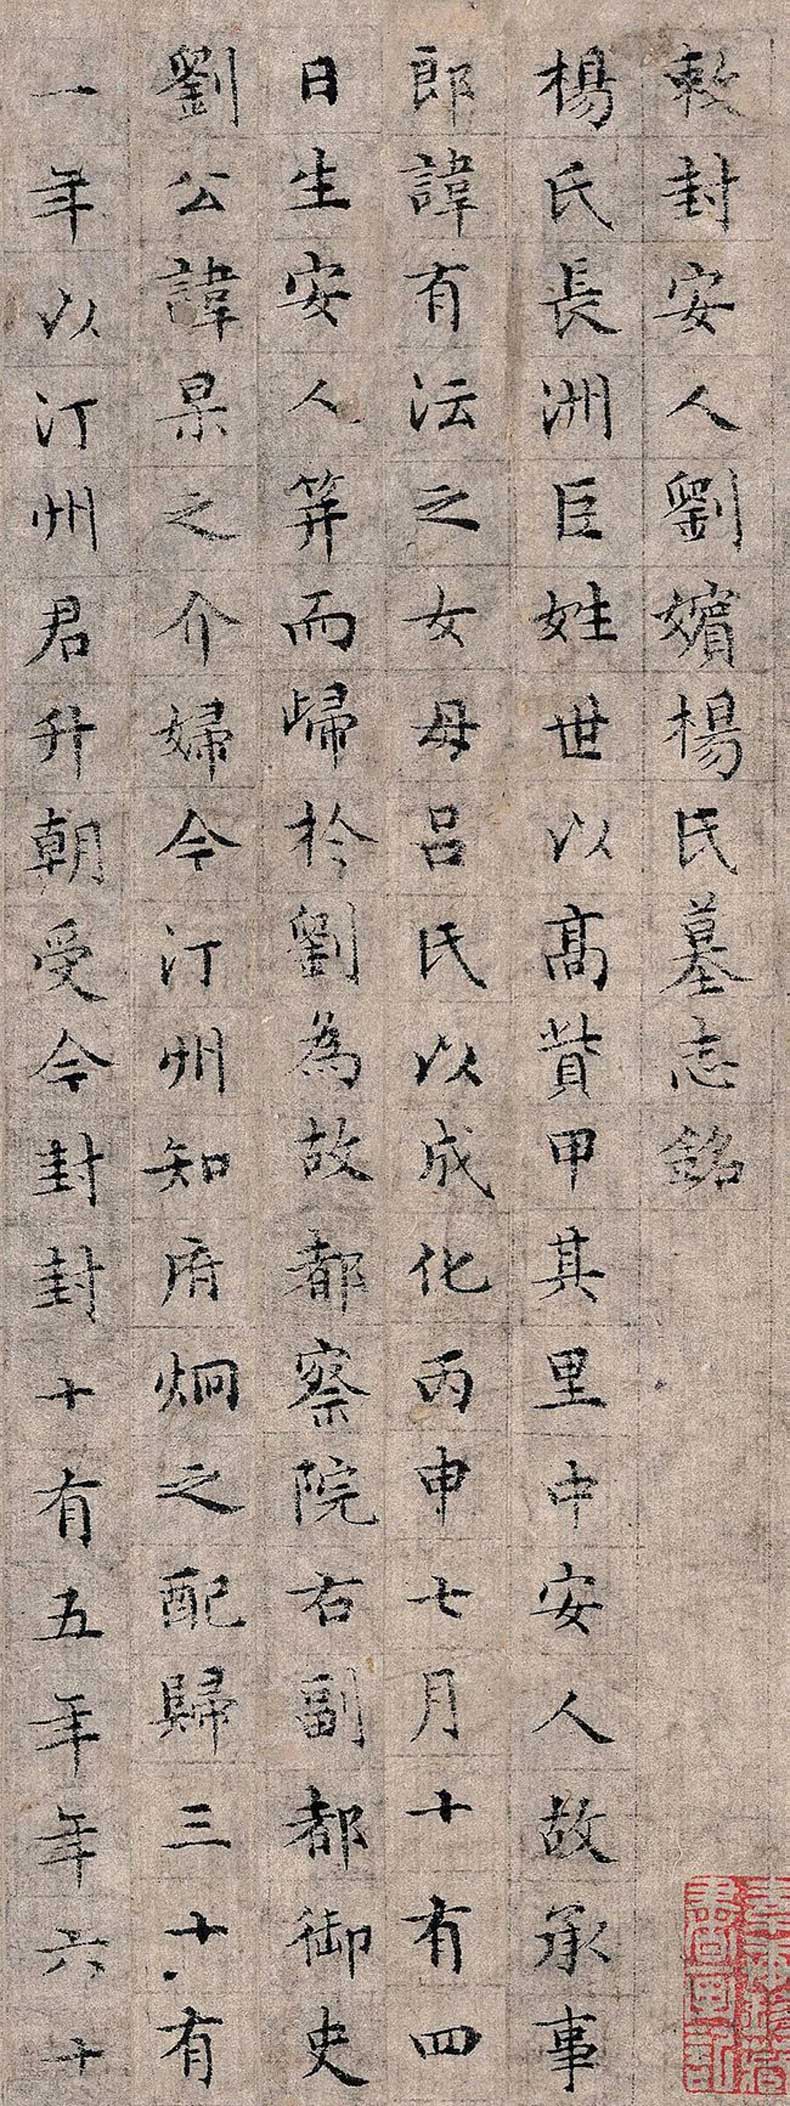 敕封安人劉嬪楊氏墓志銘
楊氏長洲巨姓世以高貲甲其里中安人故承事
郎諱有沄之女母呂氏以成化丙申七月十有四
日生安人筓而歸於劉為故都察院右副都御史
劉公諱杲之介婦今汀州知府炯之配歸三十有
一年以汀州君升朝受今封封十有五年年六十